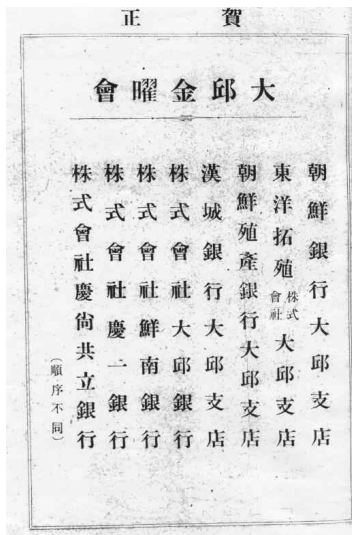 賀正
大邱金曜會
朝鮮銀行大邱支店
東洋拓殖株式會社大邱支店
朝鮮殖產銀行大邱支店
漢城銀行大邱支店
株式會社大邱銀行
株式會社鮮南銀行
株式會社慶一銀行
株式會社慶尙共立銀行
(順序不同)